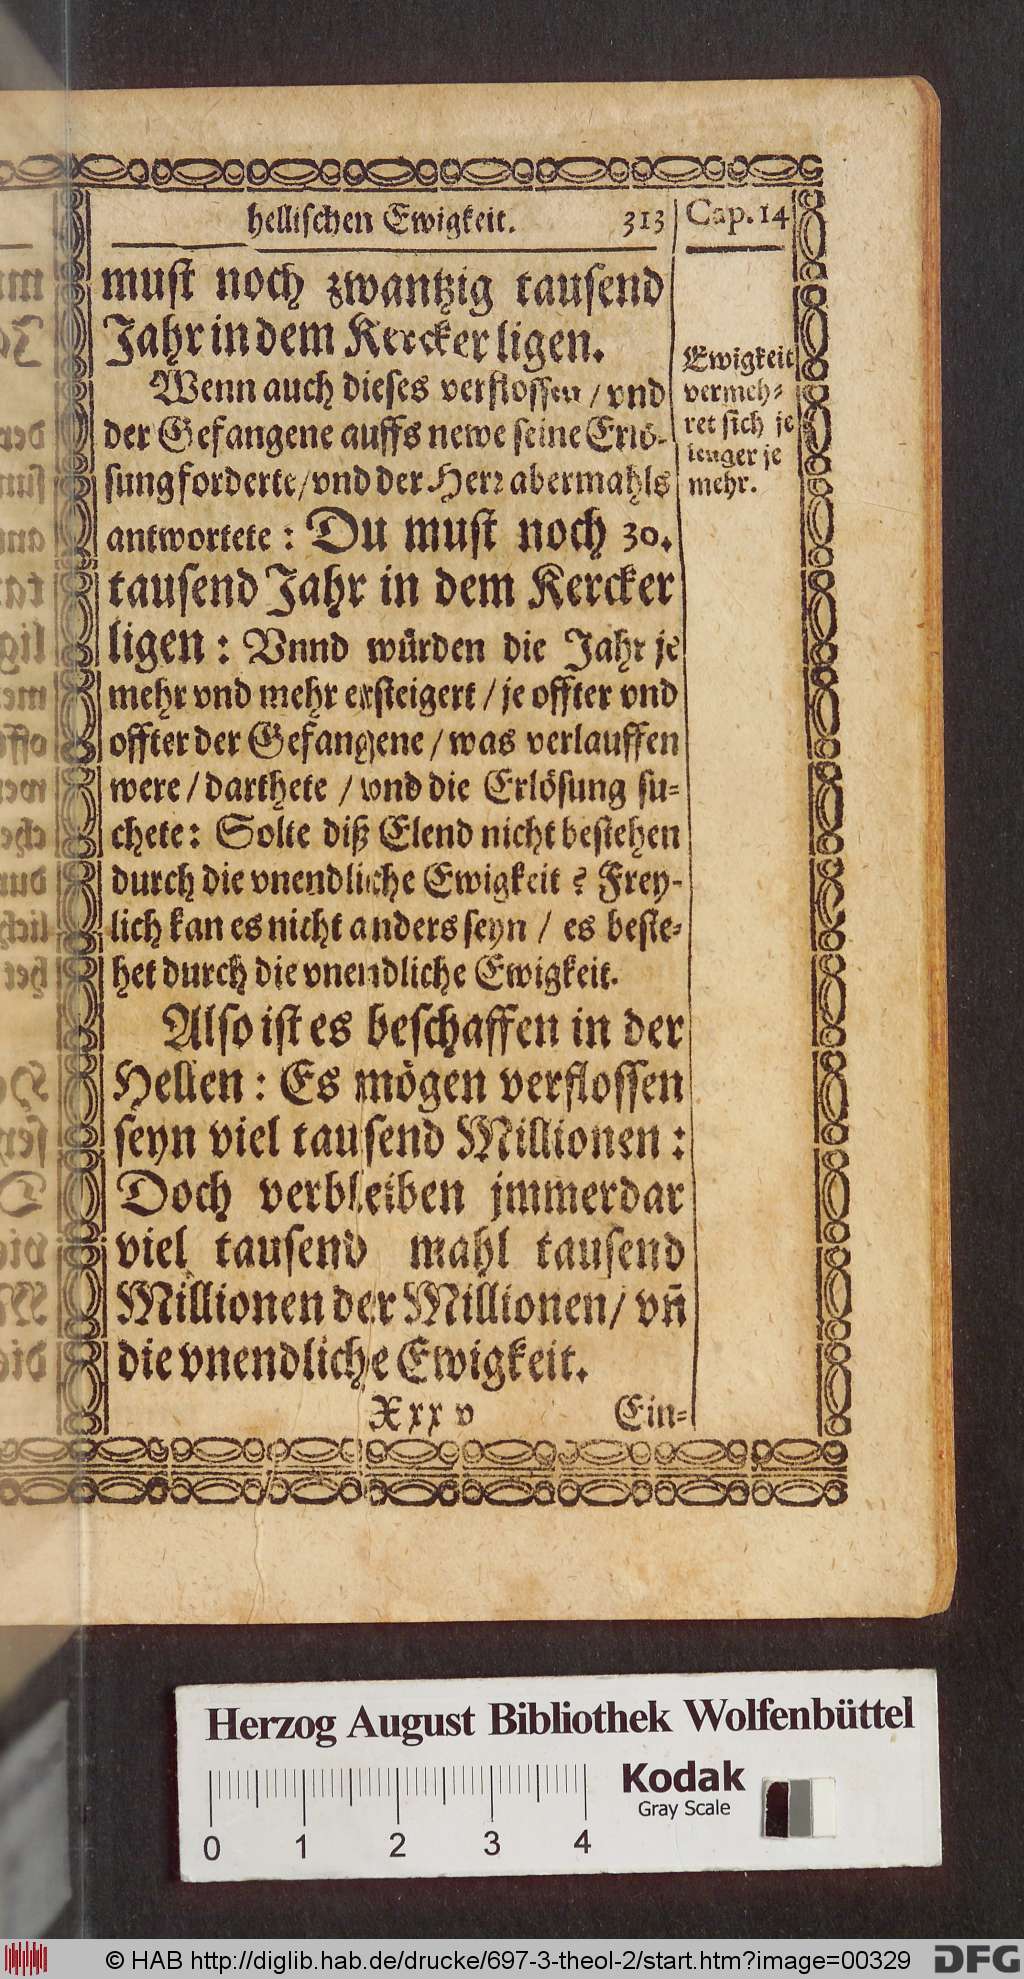 hellischen Ewigkeit. 313 Cap. 14
must noch zwantzig tausend
Jahr in dem Kercker ligen.
Wenn auch dieses verflossen / vnd
der Gefangene auffs newe seine Erlö-
sung forderte / vnd der Herr abermahls
antwortete : Du must noch 30.
tausend Jahr in dem Kercker
ligen : Vnnd würden die Jahr je
mehr vnd mehr ersteigert / je offter vnd
offter der Gefangene / was verlauffen
were / darthete / vnd die Erlösung su-
chete : Solte diß Elend nicht bestehen
durch die vnendliche Ewigkeit ? Frey-
lich kan es nicht anders seyn / es beste-
het durch die vnendliche Ewigkeit.
Also ist es beschaffen in der
Hellen : Es mögen verflossen
seyn viel tausend Millionen :
Doch verbleiben jmmerdar
viel tausend mahl tausend
Millionen der Millionen / vn̄
die vnendliche Ewigkeit.
Xxx v Ein-
Ewigkeit
vermeh-
ret sich je
lenger je
mehr.
Herzog August Bibliothek Wolfenbüttel
Kodak
Gray Scale
0 1 2 3 4
© HAB http://diglib.hab.de/drucke/697-3-theol-2/start.htm?image=00329
DFG